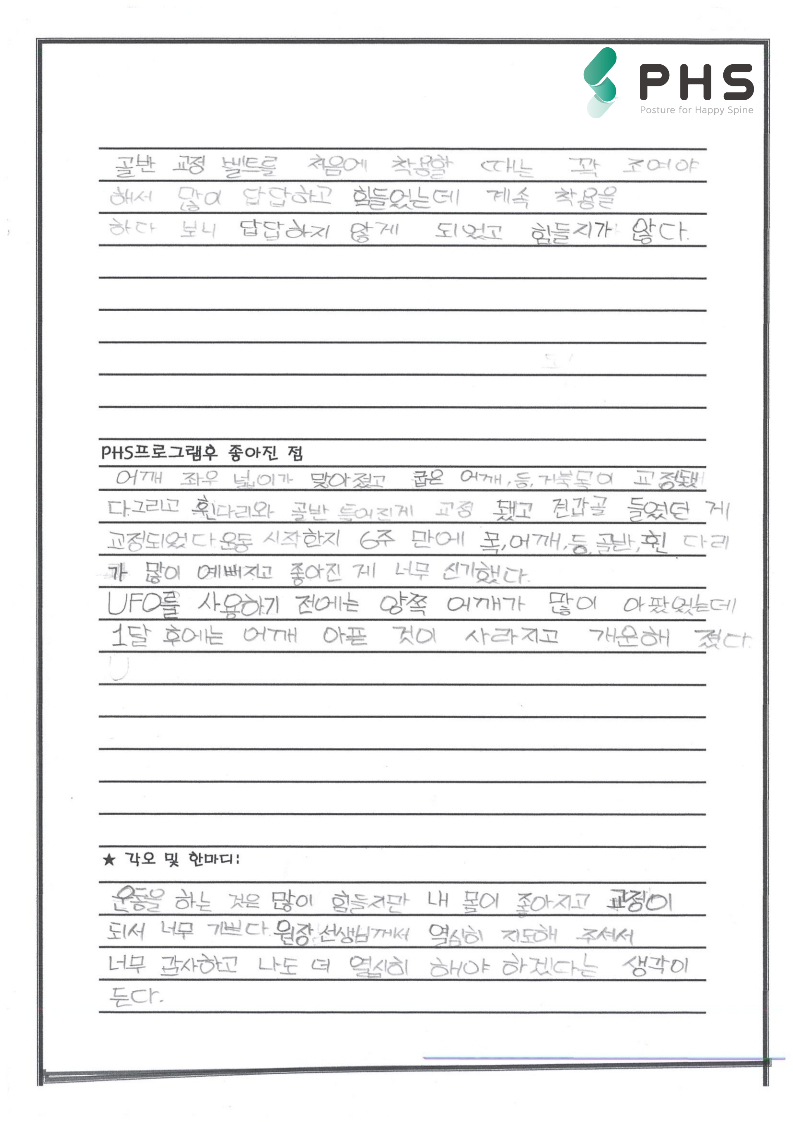 PHS
Posture for Happy Spine
골반 교정 벨트를 처음에 착용할 때는 꽉 조여야
해서 많이 답답하고 힘들었는데 계속 착용을
하다 보니 답답하지 않게 되었고 힘들지가 않다.
PHS프로그램후 좋아진 점
어깨 좌우 넓이가 맞아졌고 굽은 어깨,등,거북목이 교정됐
다.그리고 휜다리와 골반 틀어진게 교정 됐고 견갑골 들렸던 게
교정되었다 운동 시작한지 6주 만에 목,어깨,등,골반,휜 다리
가 많이 예뻐지고 좋아진 게 너무 신기했다.
UFO를 사용하기 전에는 양쪽 어깨가 많이 아팠었는데
1달 후에는 어깨 아픈 것이 사라지고 개운해 졌다.
★ 각오 및 한마디:
운동을 하는 것은 많이 힘들지만 내 몸이 좋아지고 교정이
되서 너무 기쁘다.원장,선생님께서 열심히 지도해 주셔서
너무 감사하고 나도 더 열심히 해야 하겠다는 생각이
든다.